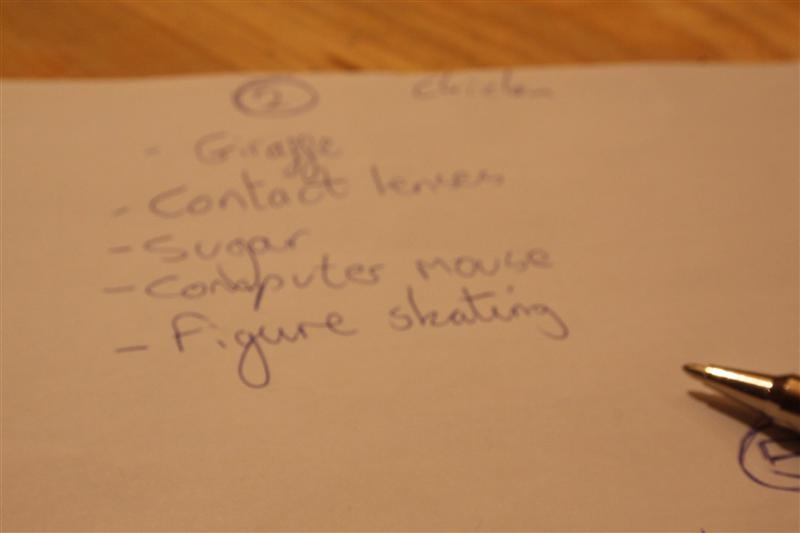 2 Chicken
- Giraffe
- Contact lenses
- Sugar
- Computer mouse
- Figure skating